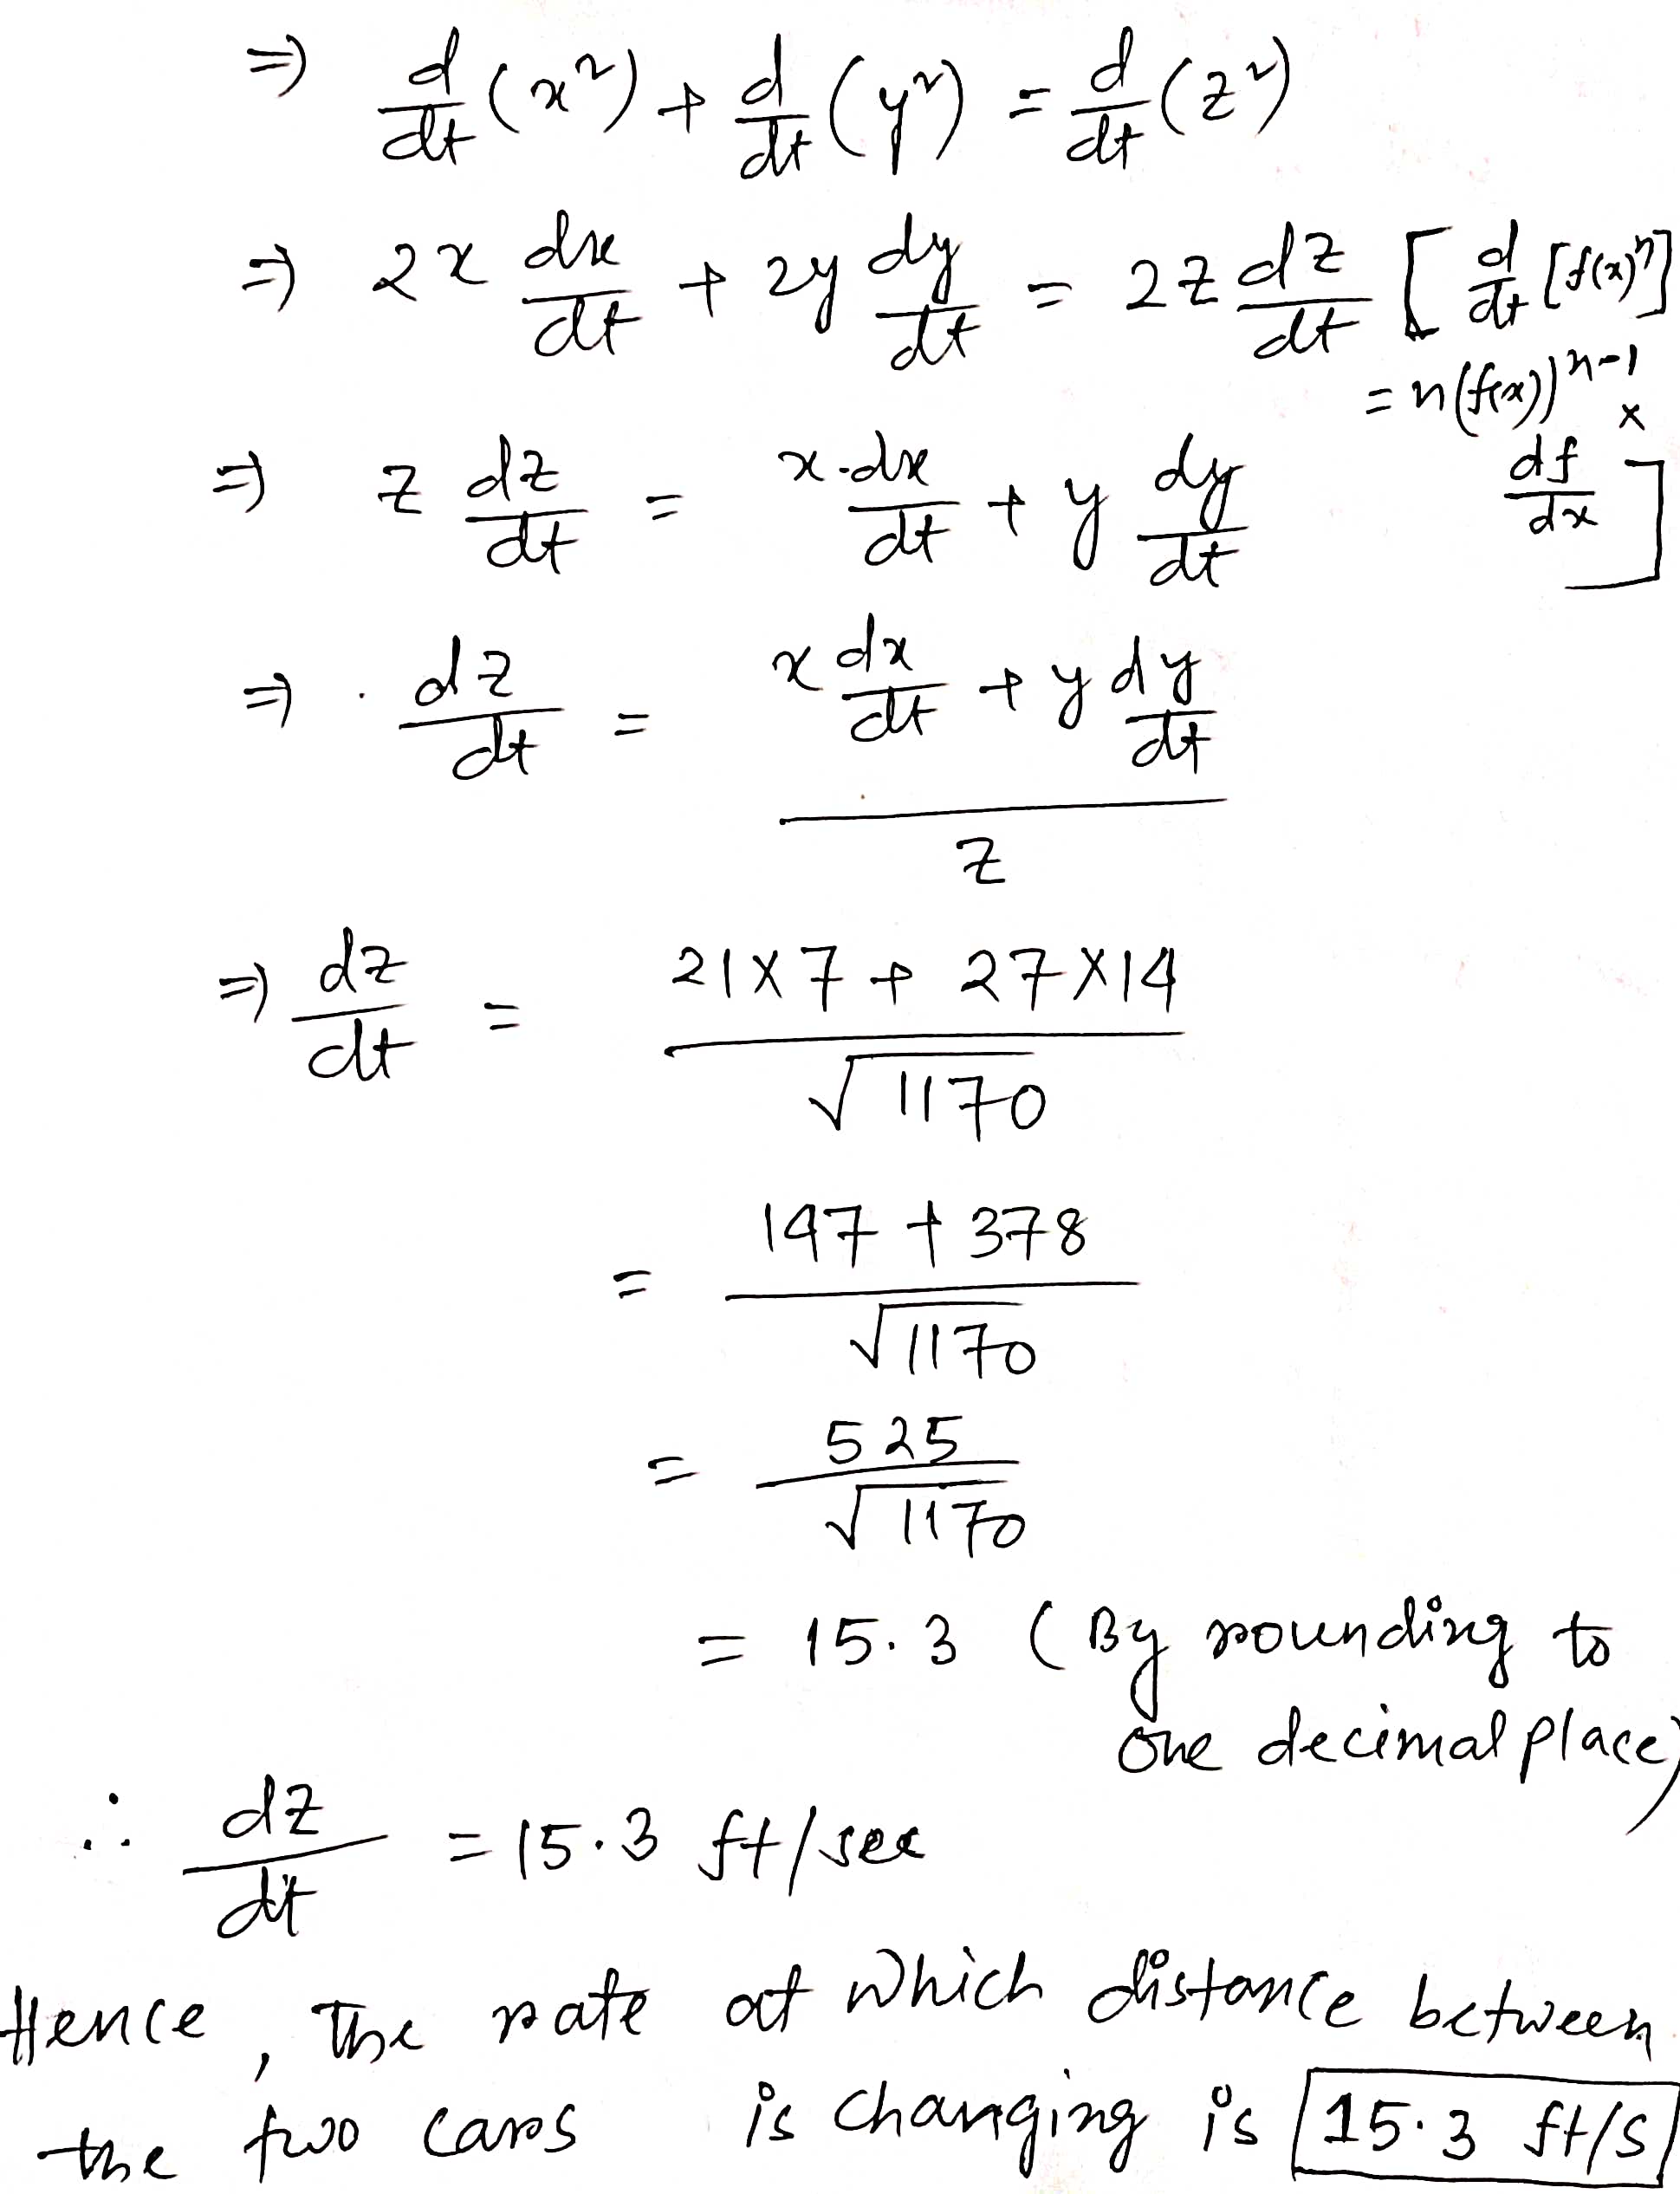 ⇒ d/dt (x²) + d/dt (y²) = d/dt (z²)
⇒ 2x dx/dt + 2y dy/dt = 2z dz/dt [ d/dt [f(x)ⁿ]
= n(f(x))ⁿ⁻¹ ×
⇒ z dz/dt = x·dx/dt + y dy/dt df/dx ]
⇒ · dz/dt = (x dx/dt + y dy/dt) / z
⇒ dz/dt = (21×7 + 27×14) / √1170
= (147 + 378) / √1170
= 525 / √1170
= 15.3 (By rounding to
one decimal place)
∴ dz/dt = 15.3 ft/sec
Hence, The rate at which distance between
the two cars is changing is 15.3 ft/s